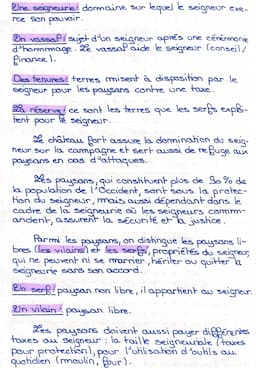 Une seigneurie: domaine sur lequel le seigneur exe-
rce son pouvoir.
Un vassal: sujet d'un seigneur après une cérémonie
d'hommage. Le vassal aide le seigneur (conseil/
finance).
Des tenures: terres misent à disposition par le
seigneur pour les paysans contre une taxe.
La réserve: ce sont les terres que les serfs exploi-
tent pour le seigneur.
Le château fort assure la domination du seig-
neur sur la campagne et sert aussi de refuge aux
paysans en cas d'attaques.
Les paysans, qui constituent plus de 90% de
la population de l'Occident, sont sous la protec-
tion du seigneur, mais aussi dépendant dans le
cadre de la seigneurie où les seigneurs comm-
andent, assurent la sécurité et la justice.
Parmi les paysans, on distingue les paysans li-
bres (les vilains) et les serfs, propriétés du seigneur,
qui ne peuvent ni se marrier, hériter ou quitter la
seigneurie sans son accord.
Un serf: paysan non libre, il appartient au seigneur.
Un vilain: paysan libre.
Les paysans doivent aussi payer différentes
taxes au seigneur: la taille seigneuriale (taxes
pour protection), pour l'utilisation d'outils au
quotidien (moulin, four).